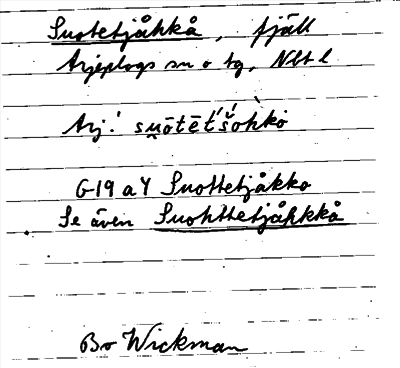 Suotetjåkkå, fjäll
Arjeplogs sn o tg, Nbt l
Arj.: su̯ōtētʹšohkò
G19 a Y Suottetjåkko
Se även Suohttetjåhkkå
Bo Wickman